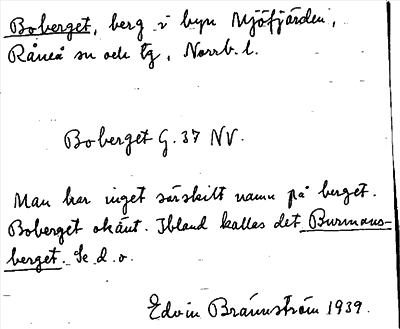 Boberget, berg i byn Mjöfjärden,
Råneå sn och tg, Norrb. l.
Boberget G. 37 NV.
Man har inget särskilt namn på berget.
Boberget okänt. Ibland kallas det Burmans-
berget. Se d. o.
Edvin Brännström 1939.